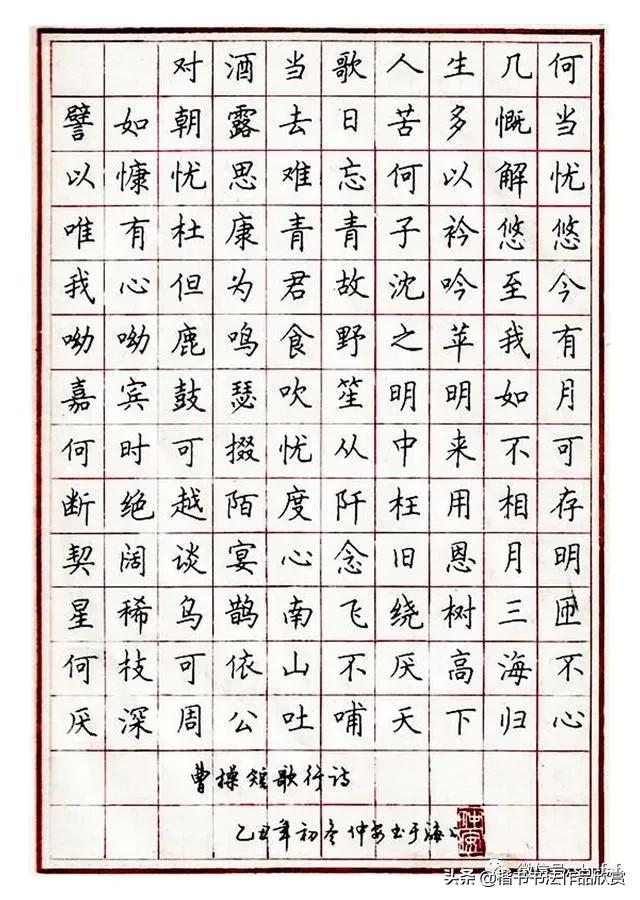 对酒当歌人生几何
譬如朝露去日苦多慨当
以慷忧思难忘何以解忧
唯有杜康青青子衿悠悠
我心但为君故沈吟至今
呦呦鹿鸣食野之苹我有
嘉宾鼓瑟吹笙明明如月
何时可掇忧从中来不可
断绝越陌度阡枉用相存
契阔谈宴心念旧恩月明
星稀乌鹊南飞绕树三匝
何枝可依山不厌高海不
厌深周公吐哺天下归心
曹操短歌行诗
乙丑年初冬仲安书于海上
仲安
头条 @楷书书法作品欣赏